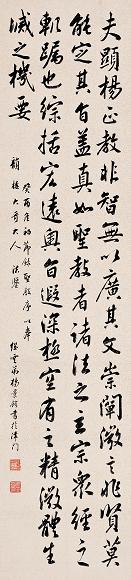 夫顯揚正教非智無以廣其文崇闡微言非賢莫
能定其旨蓋真如聖教者諸法之玄宗眾經之
軌躅也綜括宏遠奧旨遐深極空有之精微體生
滅之機要
癸酉 初節錄聖教序以奉
大哥大人 法鑒
雲弟楊景 書於津門